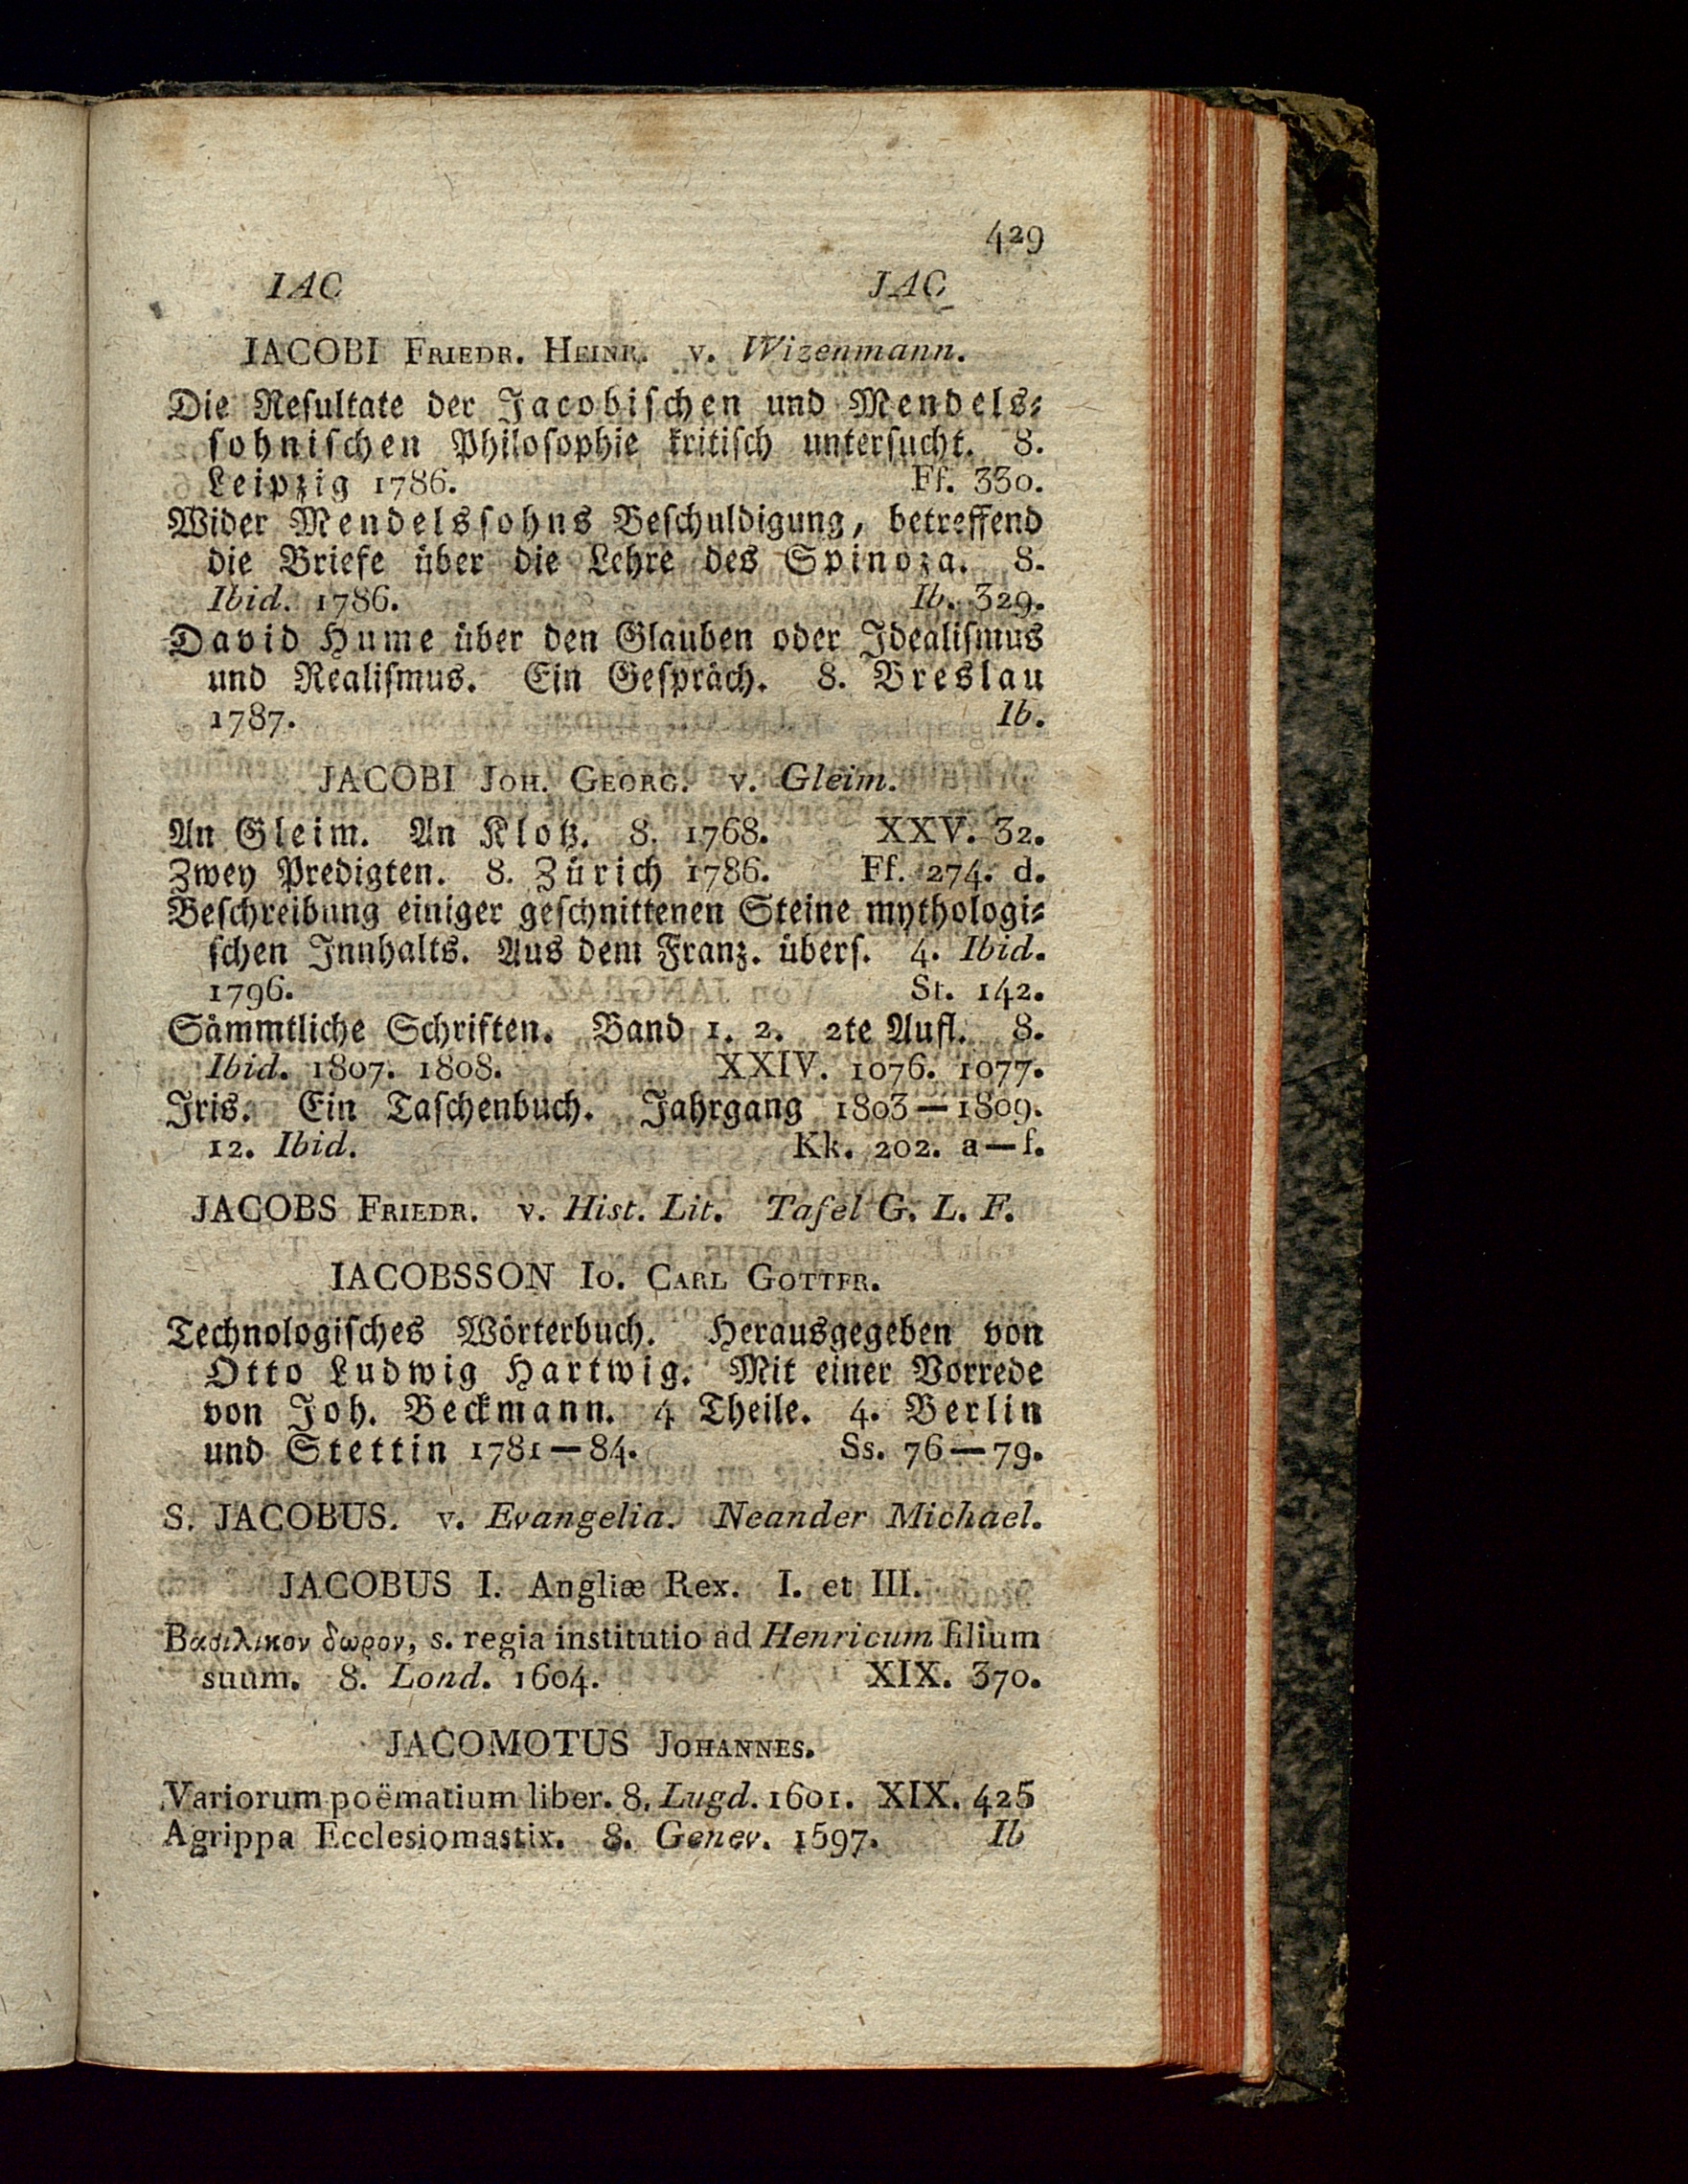 429
IAC JAC
IACOBI FRIEDR. HEINR. v. Wizenmann.
Die Reſultate der Jacobiſchen und Mendels⸗
ſohniſchen Philoſophie kritiſch unterſucht. 8.
Leipzig 1786. Ff. 330.
Wider Mendelsſohns Beſchuldigung, betreffend
die Briefe über die Lehre des Spinoza. 8.
Ibid. 1786. Ib. 329.
David Hume über den Glauben oder Idealiſmus
und Realiſmus. Ein Geſpräch. 8. Breslau
1787. Ib.
JACOBI JOH. GEORG. v. Gleim.
An Gleim. An Klotz. 8. 1768. XXV. 32.
Zwey Predigten. 8. Zürich 1786. Ff. 274. d.
Beſchreibung einiger geſchnittenen Steine mythologi⸗
ſchen Innhalts. Aus dem Franz. überſ. 4. Ibid.
1796. St. 142.
Sämmtliche Schriften. Band 1. 2. 2te Aufl. 8.
Ibid. 1807. 1808. XXIV. 1076. 1077.
Iris. Ein Taſchenbuch. Jahrgang 1803—1809.
12. Ibid. Kk. 202. a—f.
JACOBS FRIEDR. v. Hist. Lit. Tafel G. L. F.
IACOBSSON IO. CARL GOTTFR.
Technologiſches Wörterbuch. Herausgegeben von
Otto Ludwig Hartwig. Mit einer Vorrede
von Joh. Beckmann. 4 Theile. 4. Berlin
und Stettin 1781—84. Ss. 76—79.
S. JACOBUS. v. Evangelia. Neander Michael.
JACOBUS I. Angliæ Rex. I. et III.
Βασιλικον δωρον, s. regia institutio ad Henricum filium
suum. 8. Lond. 1604. XIX. 370.
JACOMOTUS JOHANNES.
Variorum poëmatium liber. 8. Lugd. 1601. XIX. 425
Agrippa Ecclesiomastix. 8. Genev. 1597. Ib